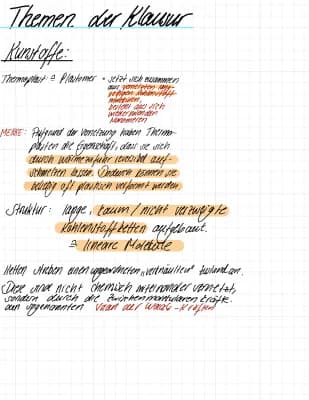 Themen der Klausur
Kunstoffe:
Thermoplast ≙ Plastomer • setzt sich zusammen
aus vernetzten
bestehet aus sich
wiederholenden
Monomeren
MERKE: Aufgrund der Vernetzung haben Thermo-
plasten die Eigenschaft, dass sie sich
durch Wärmezufuhr reversibel auf-
schmelzen lassen. Dadurch können sie
beliebig oft plastisch verformt werden
Struktur: lange, kaum / nicht verzweigte
Kohlenstoffketten aufgebaut.
≙ lineare Moleküle
Ketten streben einen ungeordneten, „verknäuelten" Zustand an.
Diese sind nicht chemisch miteinander vernetzt,
sondern durch die zwischenmolekularen Kräfte.
den sogenannten Van der Waals-Kräften